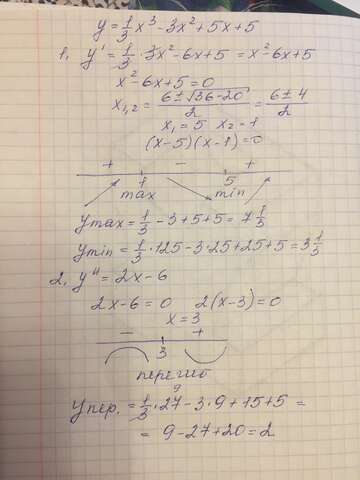 y = 1/3 x³ - 3x² + 5x + 5
1. y' = 1/3 · 3x² - 6x + 5 = x² - 6x + 5
x² - 6x + 5 = 0
x₁,₂ = (6 ± √36-20)/2 = (6 ± 4)/2
x₁ = 5 x₂ = 1
(x-5)(x-1) = 0
+ - +
1 5
max min
ymax = 1/3 - 3 + 5 + 5 = 7 1/3
ymin = 1/3 · 125 - 3 · 25 + 25 + 5 = 3 1/3
2. y" = 2x - 6
2x - 6 = 0 2(x-3) = 0
x = 3
- +
3
перегиб
yпер. = 1/3 · 27 9 - 3 · 9 + 15 + 5 =
= 9 - 27 + 20 = 2